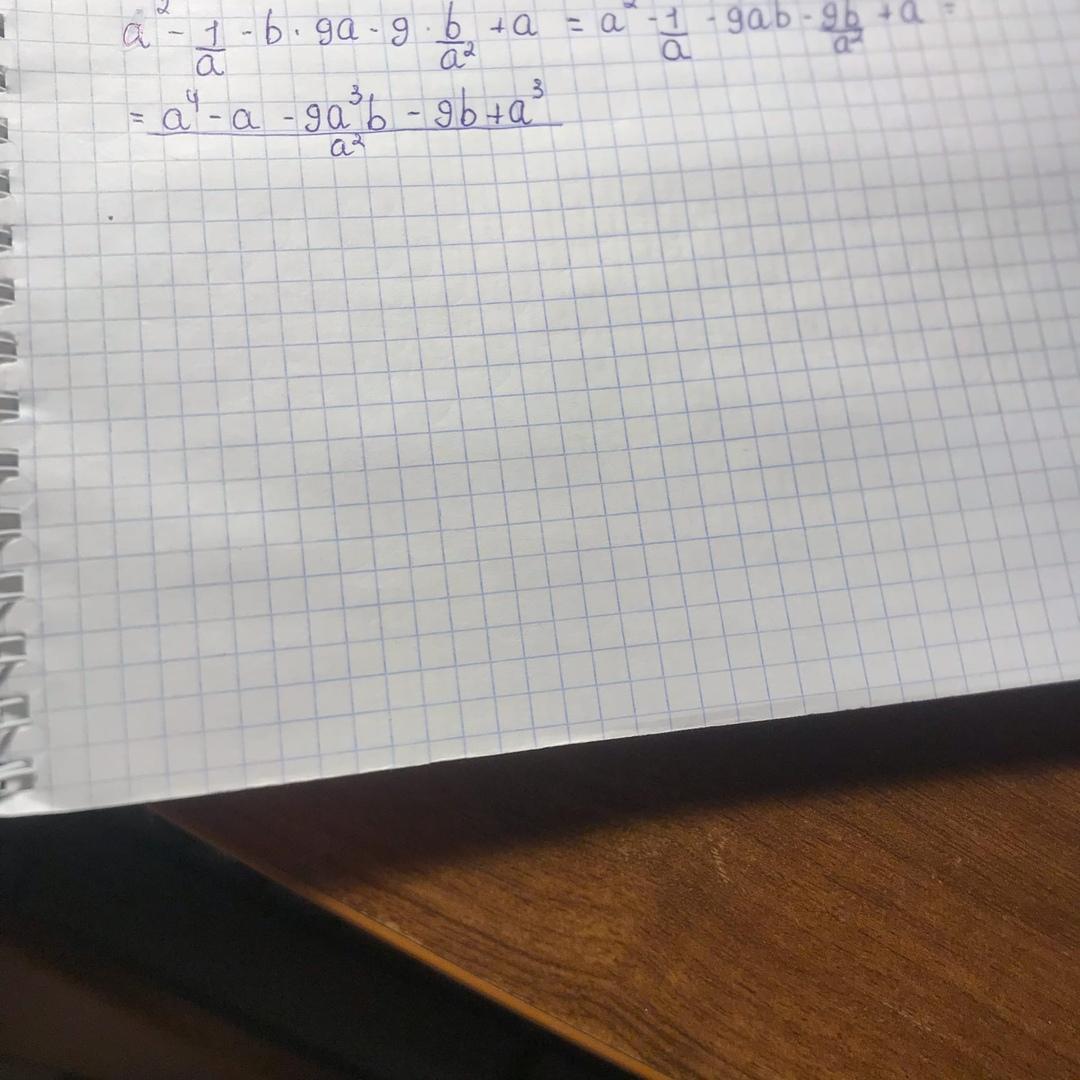 a² - 1/a - b · 9a - 9 · b/a² + a = a² - 1/a - 9ab - 9b/a² + a =
= (a⁴ - a - 9a³b - 9b + a³)/a²